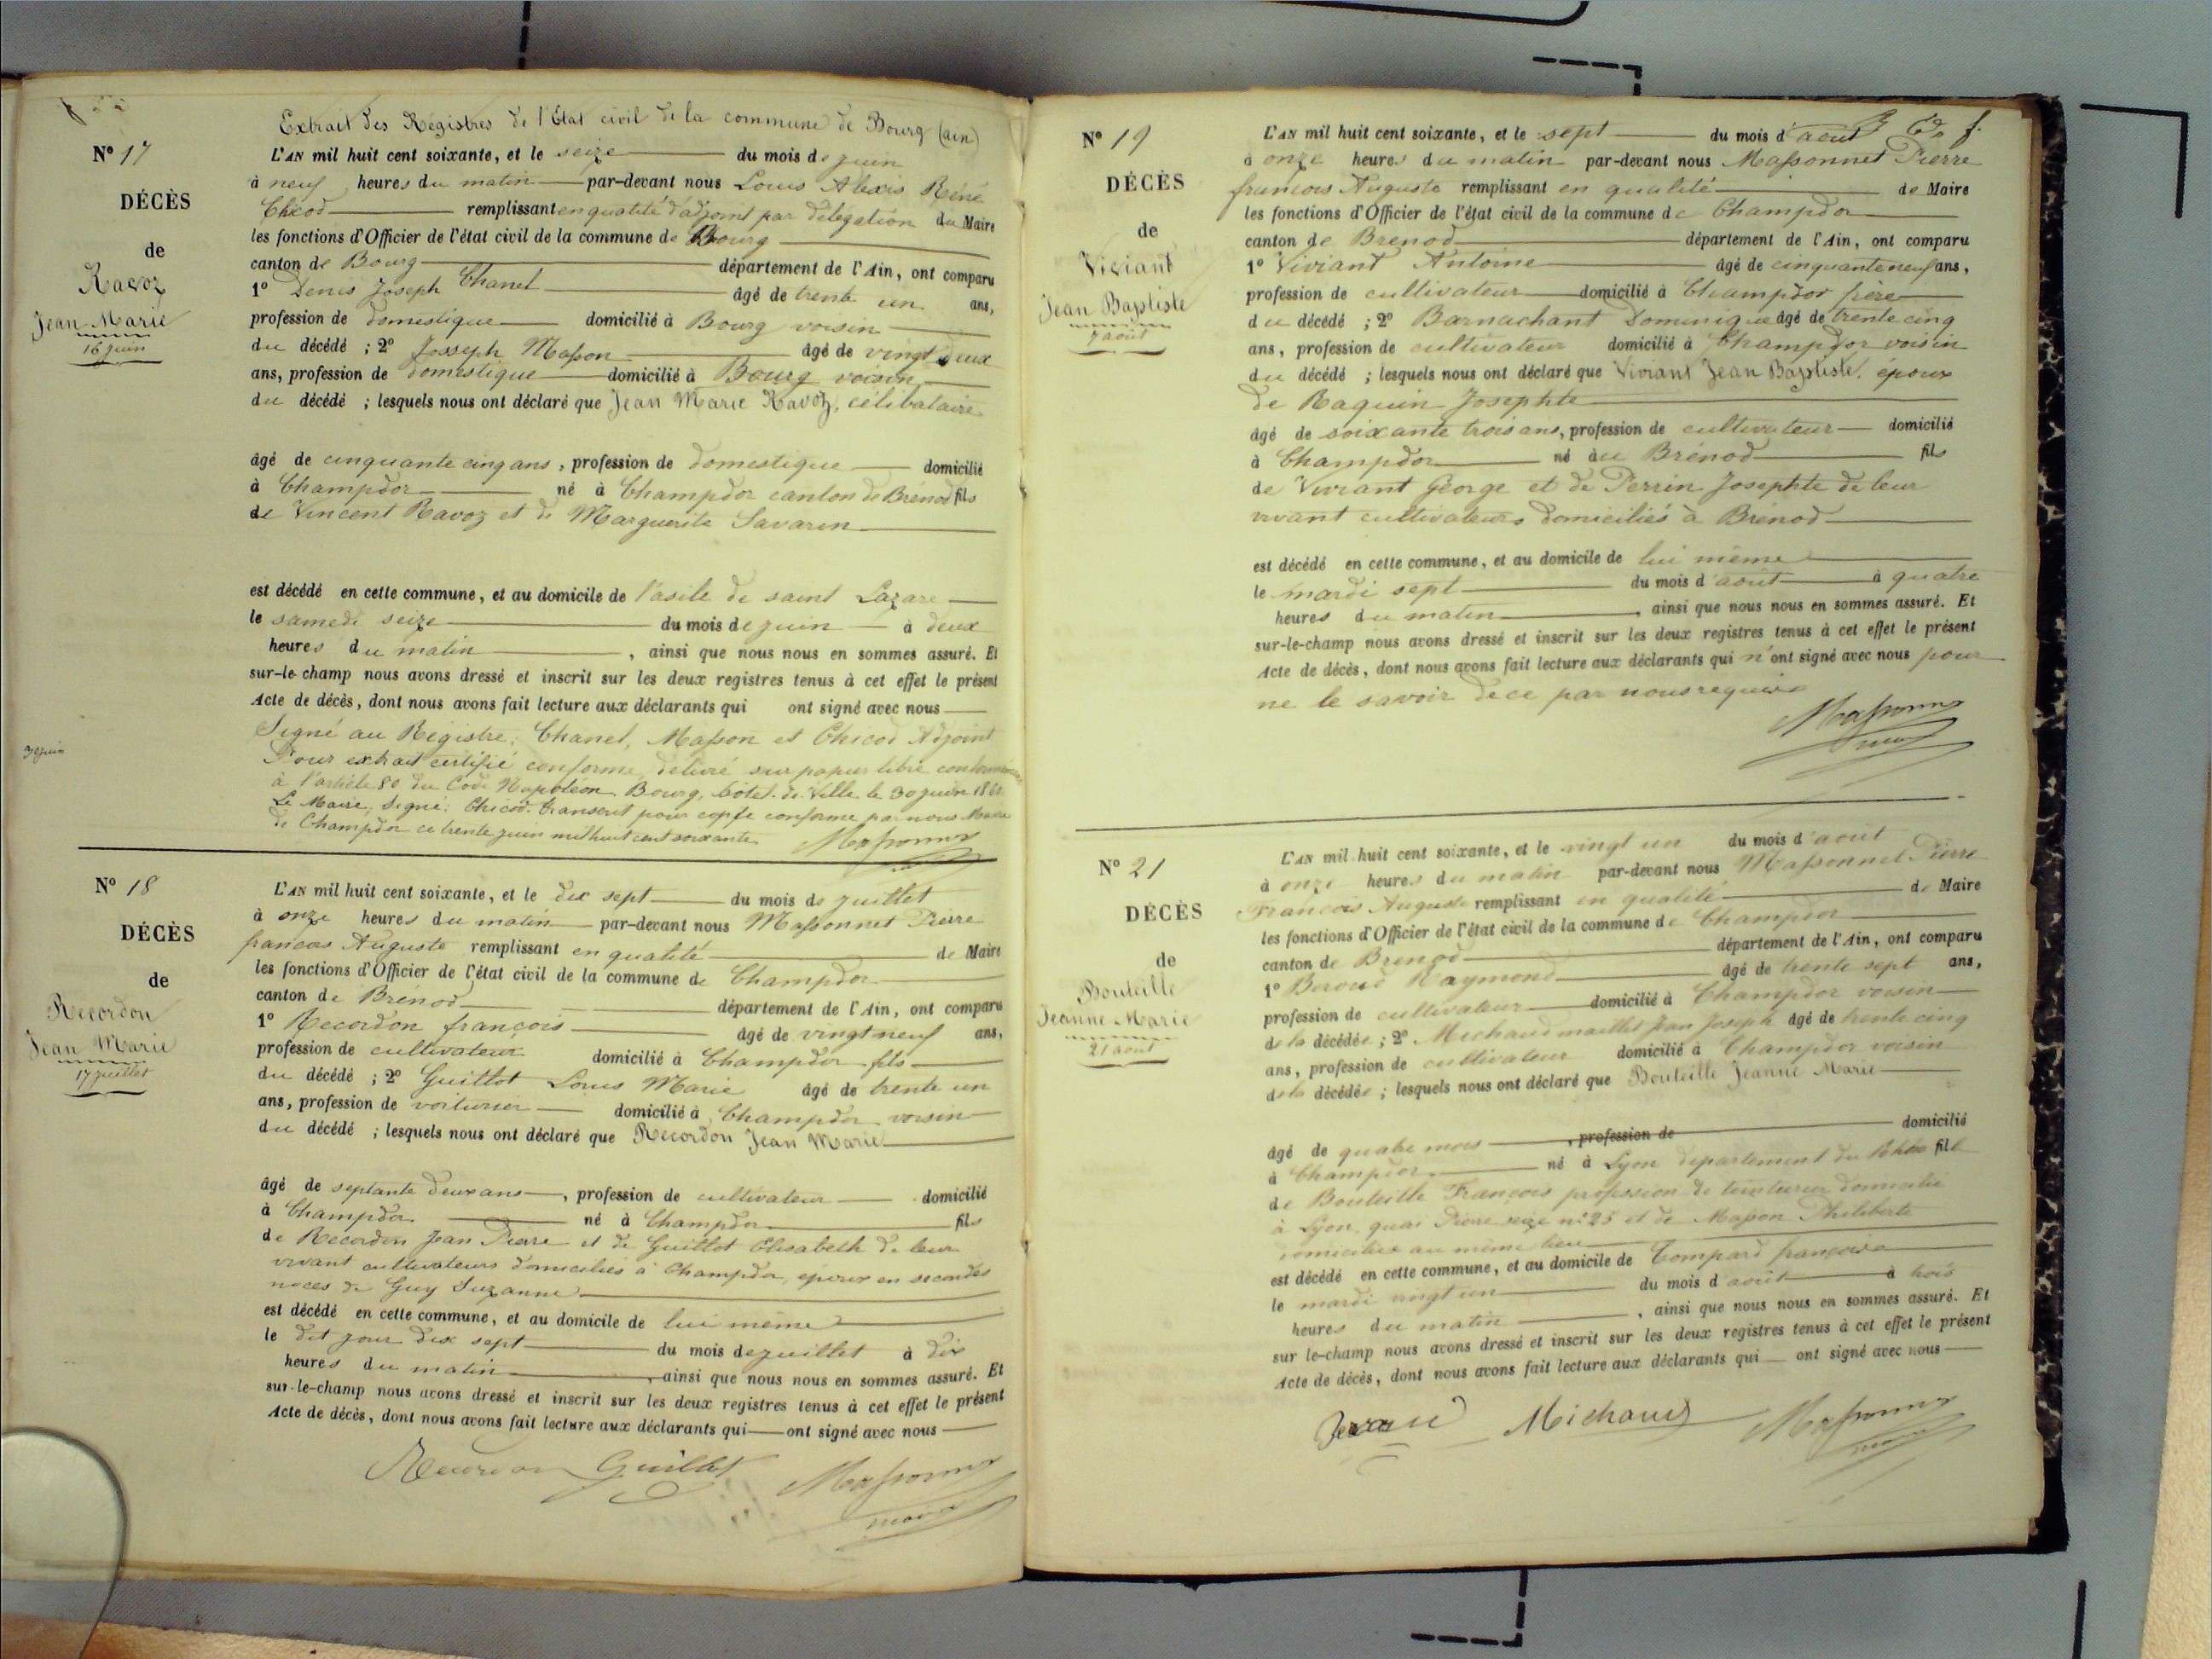 Extrait des Régistres de l'Etat civil de la commune de Bourg (ain)
N° 17
DÉCÈS
de
Ravoz
Jean Marie
16 juin
L'AN mil huit cent soixante, et le seize du mois de juin
à neuf heures du matin par-devant nous Louis Alexis Réné
Chicod remplissant en qualité d'adjoint par délégation du Maire
les fonctions d'Officier de l'état civil de la commune de Bourg
canton de Bourg département de l'Ain, ont comparu
1° Denis Joseph Chanel âgé de trente un ans,
profession de domestique domicilié à Bourg voisin
du décédé ; 2° Josseph Masson âgé de vingt deux
ans, profession de domestique domicilié à Bourg voisin
du décédé ; lesquels nous ont déclaré que Jean Marie Ravoz, célibataire
âgé de cinquante cinq ans, profession de domestique domicilié
à Champdor né à Champdor canton de Brénod fils
de Vincent Ravoz et de Marguerite Savarin
est décédé en cette commune, et au domicile de l'asile de saint Lazare
le samedi seize du mois de juin à deux
heures du matin, ainsi que nous nous en sommes assuré. Et
sur-le-champ nous avons dressé et inscrit sur les deux registres tenus à cet effet le présent
Acte de décès, dont nous avons fait lecture aux déclarants qui ont signé avec nous
Signé au Régistre, Chanel, Masson et Chicod Adjoint
Pour extrait certifié conforme, délivré sur papier libre conformément
à l'article 80 du Code Napoléon. Bourg, hotel de Ville le 30 juin 1860
Le Maire, Signé: Chicod. transcrit pour copie conforme par nous Maire
de Champdor ce trente juin mil huit cent soixante
Massonnet
30 juin
N° 18
DÉCÈS
de
Recordon
Jean Marie
17 juillet
L'AN mil huit cent soixante, et le dix sept du mois de juillet
à onze heures du matin par-devant nous Massonnet Pierre
francois Auguste remplissant en qualité de Maire
les fonctions d'Officier de l'état civil de la commune de Champdor
canton de Brénod département de l'Ain, ont comparu
1° Recordon françois âgé de vingt neuf ans,
profession de cultivateur domicilié à Champdor fils
du décédé ; 2° Guillot Louis Marie âgé de trente un
ans, profession de voiturier domicilié à Champdor voisin
du décédé ; lesquels nous ont déclaré que Recordon Jean Marie
âgé de septante deux ans, profession de cultivateur domicilié
à Champdor né à Champdor fils
de Recordon Jean Pierre et de Guillot Elisabeth de leur
vivant cultivateurs domiciliés à Champdor, époux en secondes
noces de Guy Suzanne
est décédé en cette commune, et au domicile de lui même
le dit jour dix sept du mois de juillet à dix
heures du matin, ainsi que nous nous en sommes assuré. Et
sur-le-champ nous avons dressé et inscrit sur les deux registres tenus à cet effet le présent
Acte de décès, dont nous avons fait lecture aux déclarants qui ont signé avec nous
Recordon Guillot Massonnet
maire
N° 19
DÉCÈS
de
Viviant
Jean Baptiste
7 aout
L'AN mil huit cent soixante, et le sept du mois d'aout
à onze heures du matin par-devant nous Massonnet Pierre
francois Auguste remplissant en qualité de Maire
les fonctions d'Officier de l'état civil de la commune de Champdor
canton de Brenod département de l'Ain, ont comparu
1° Viviant Antoine âgé de cinquante neuf ans,
profession de cultivateur domicilié à Champdor frère
du décédé ; 2° Barnachant Dominique âgé de trente cinq
ans, profession de cultivateur domicilié à Champdor voisin
du décédé ; lesquels nous ont déclaré que Viviant Jean Baptiste, époux
de Raquin Josephte
âgé de soixante trois ans, profession de cultivateur domicilié
à Champdor né à Brénod fils
de Viviant George et de Perrin Josephte de leur
vivant cultivateurs domiciliés à Brénod
est décédé en cette commune, et au domicile de lui même
le mardi sept du mois d'août à quatre
heures du matin, ainsi que nous nous en sommes assuré. Et
sur-le-champ nous avons dressé et inscrit sur les deux registres tenus à cet effet le présent
Acte de décès, dont nous avons fait lecture aux déclarants qui n'ont signé avec nous pour
ne le savoir de ce par nous requis
Massonnet
maire
N° 21
DÉCÈS
de
Bouteille
Jeanne Marie
21 aout
L'AN mil huit cent soixante, et le vingt un du mois d'aout
à onze heures du matin par-devant nous Massonnet Pierre
François Auguste remplissant en qualité de Maire
les fonctions d'Officier de l'état civil de la commune de Champdor
canton de Brenod département de l'Ain, ont comparu
1° Beroud Raymond âgé de trente sept ans,
profession de cultivateur domicilié à Champdor voisin
de la décédée ; 2° Michaud maillet Jean Joseph âgé de trente cinq
ans, profession de cultivateur domicilié à Champdor voisin
de la décédée ; lesquels nous ont déclaré que Bouteille Jeanne Marie
âgé de quatre mois, profession de domicilié
à Champdor né à Lyon département du Rhône fille
de Bouteille François profession de teinturier domicilié
à Lyon, quai Pierre seize n° 25 et de Masson Philiberte
domiciliée au même lieu
est décédé en cette commune, et au domicile de Compard françoise
le mardi vingt un du mois d'août à trois
heures du matin, ainsi que nous nous en sommes assuré. Et
sur le-champ nous avons dressé et inscrit sur les deux registres tenus à cet effet le présent
Acte de décès, dont nous avons fait lecture aux déclarants qui ont signé avec nous
Michaud Massonnet
maire